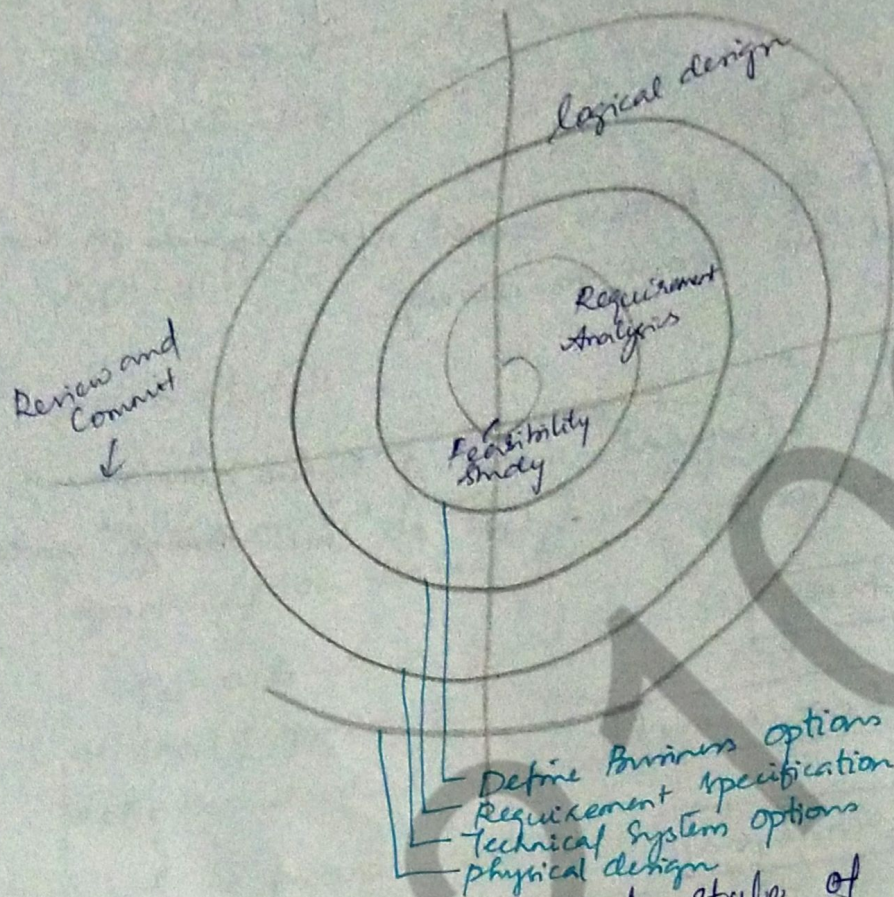 logical design
Requirement
Analysis
Review and
Commit
↓
Feasibility
Study
Define Business options
Requirement specification
Technical System options
physical design
of